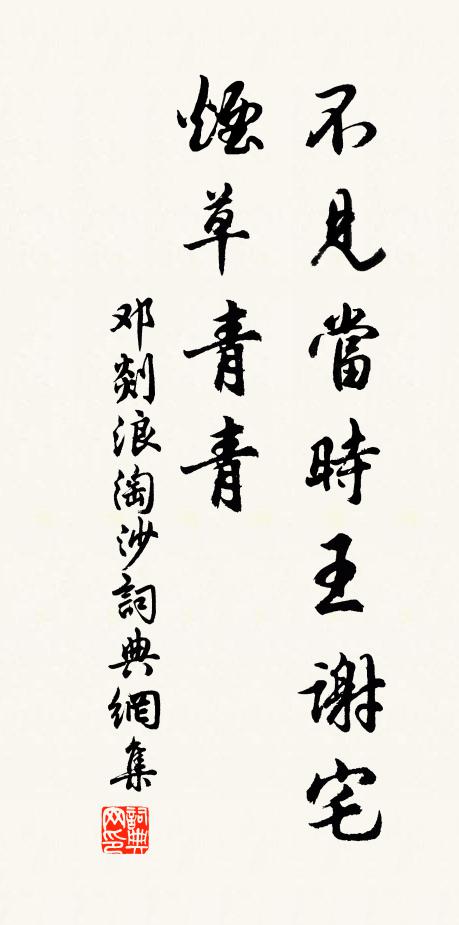 不見當時王謝宅
煙草青青
邓剡浪淘沙詞典網集
詞典
网印